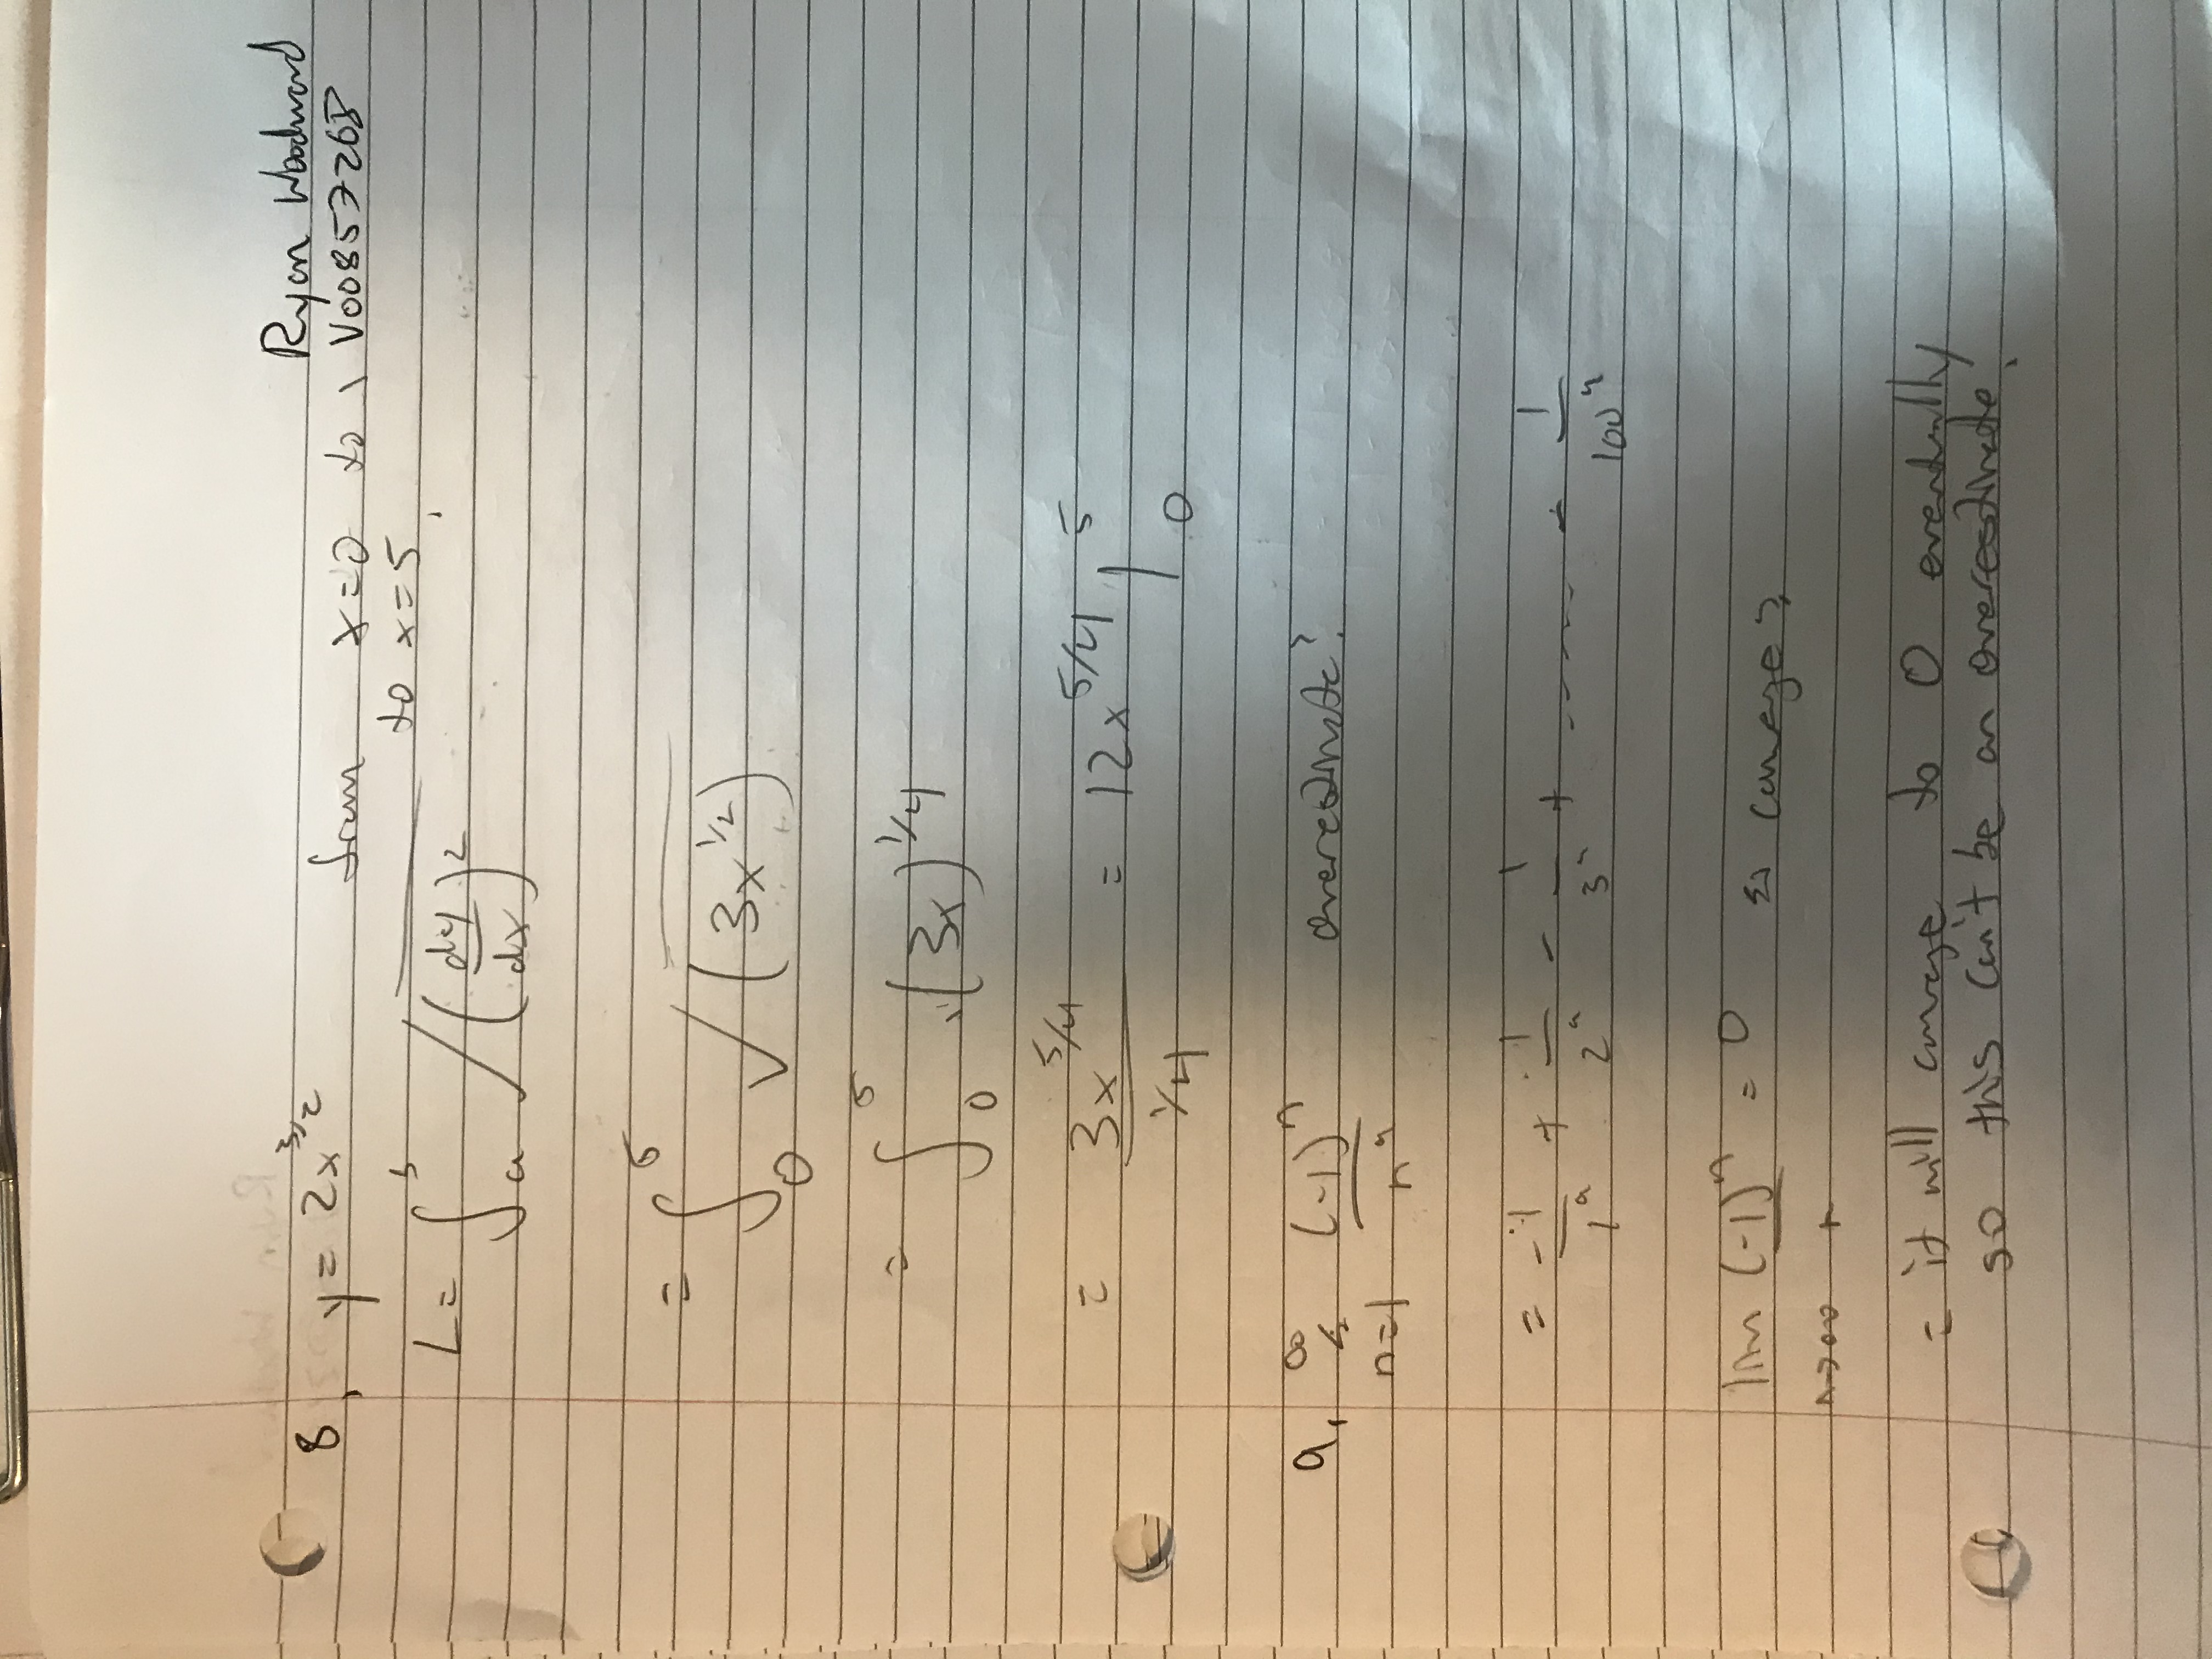 Ryan Woodward
8, y = 2x^3/2 from x=0 to V00857268
to x=5,
L = ∫_a^b √(dy/dx)^2
= ∫_0^5 √(3x^1/2)
= ∫_0^5 (3x)^1/4
= 3x^5/4 / 1/4 = 12x^5/4 |_0^5
9, ∞ Σ n=1 (-1)^n / n^4 overestimate?
= -1/1^4 + 1/2^4 - 1/3^4 + ------ - 1/100^4
lim n→∞ (-1)^n = 0 converge?
= it will converge to 0 eventually
so this can't be an overestimate.